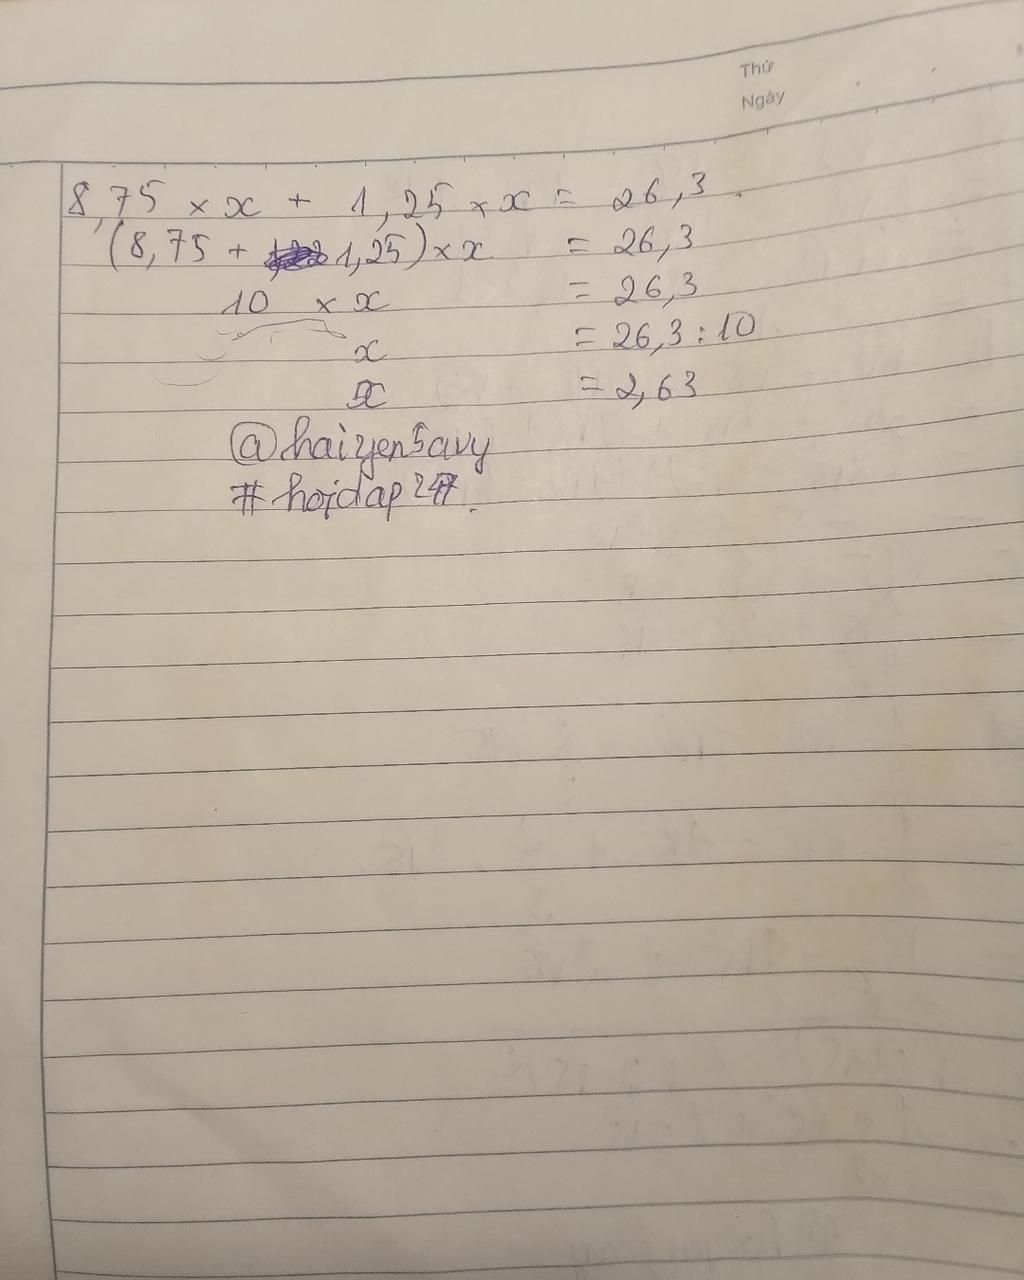 Thứ
Ngày
8,75 × x + 1,25 × x = 26,3.
(8,75 + 1,25) × x = 26,3
10 × x = 26,3
x = 26,3 : 10
x = 2,63
@haiyen5avy
#hoidap247.